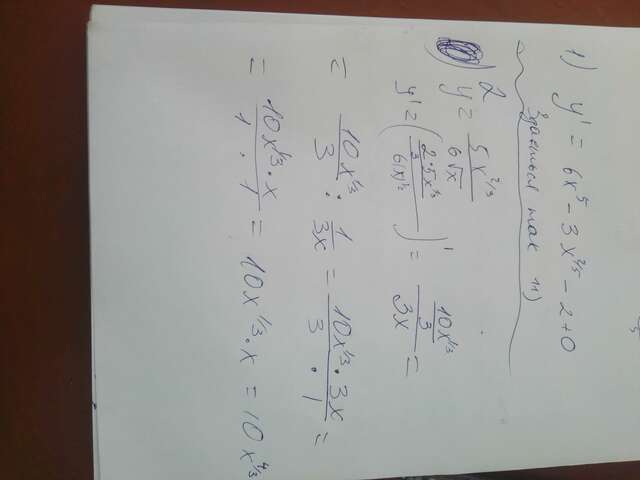 1) y' = 6x⁵ - 3x^(2/5) - 2 + 0
Здається так 1)
2) y = 5x^(2/3) / 6√x
y' = ( (2·5x^(1/3) / 3) / 6(x)^(1/2) )' = (10x^(1/3) / 3) / 3x =
= 10x^(1/3) / 3 : 1 / 3x = 10x^(1/3) · 3x / 3 · 1 =
= 10x^(1/3) · x / 1 · 1 = 10x^(1/3) · x = 10x^(4/3)